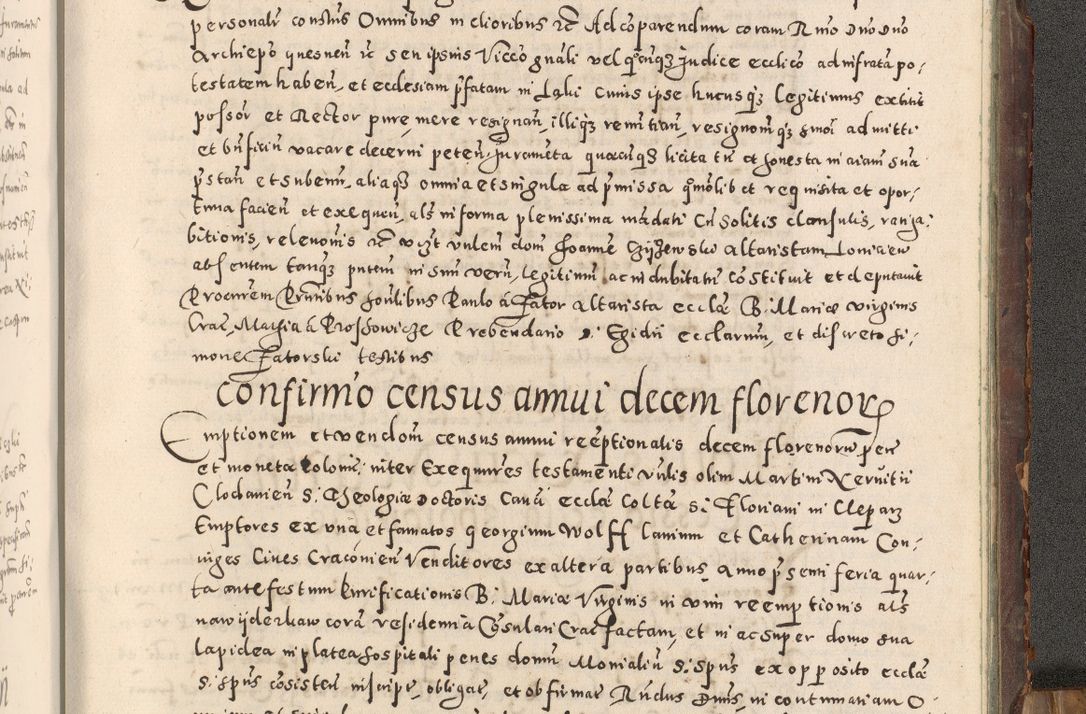 personalr constus Omnibus melioribus etc Ad cōparendum coram Rmo Dno Dno
Archiepo gnesneñ etc seu ipsius Vicco gnali vel qōcuqȝ Judice ecclico ad infrata po-
testatem habeñ, et ecclesiam pfatam in cuius ipse hucusqȝ legitimus extitit
possor et Rector pure, mere resignañ, illiqȝ remittiañ, resignoniqȝ smoi admitti
et bnficiū vacare decerni peteñ, Juramēta quæcuqȝ licita tñ et honesta in aiam sua
pstañ et subeuñ, aliaqȝ omnia et singula ad pmissa qmolibet requisita et opor-
tuna facieñ et exequeñ, als in forma plenissima mādati Cū solitis clausulis,
bitionis, relevonis etc vczt vnlem dom Joannē altaristam
absentem tanqȝ pntem in suū verū, legitimū ac indubitatū cōstituit et deputavit
Procurem Pntibus honlibus Paulo à Zator altarista ecclæ B. Mariæ virginis
Crac, Mathia à Proszowicze Prebendario S. Egidii ecclarum, et discreto Si-
mone Zatorski testibus
confirmō census annui decem florenorꝝ
Emptionem et vendom census annui reemptionalis decem florenorū pecu
et monetæ Polonic, inter Exequutores testamenti vnlis olim Martini
Clodavieñ S. Theologiæ Doctoris Canci ecclæ Colltæ S. Floriani in Clepar
Emptores ex vna et famatos Georgium Wolff lanium et Catherinam Con-
iuges Cives Cracovieñ Venditores ex altera partibus, Anno pseni feria quar-
ta ante festum Purificationis B. Mariæ Virginis in vim reemptionis als
na wyderkaw corā residentia Cōsulari Crac factam, et in ac super domo sua
lapidea in platea hospitali penes domū Monialiū S. Spūs ex opposito ecclæ
S. Spūs cōsisteñ inscript, obligat, et ob firmat Rndus Dnus, in continuatiam O-